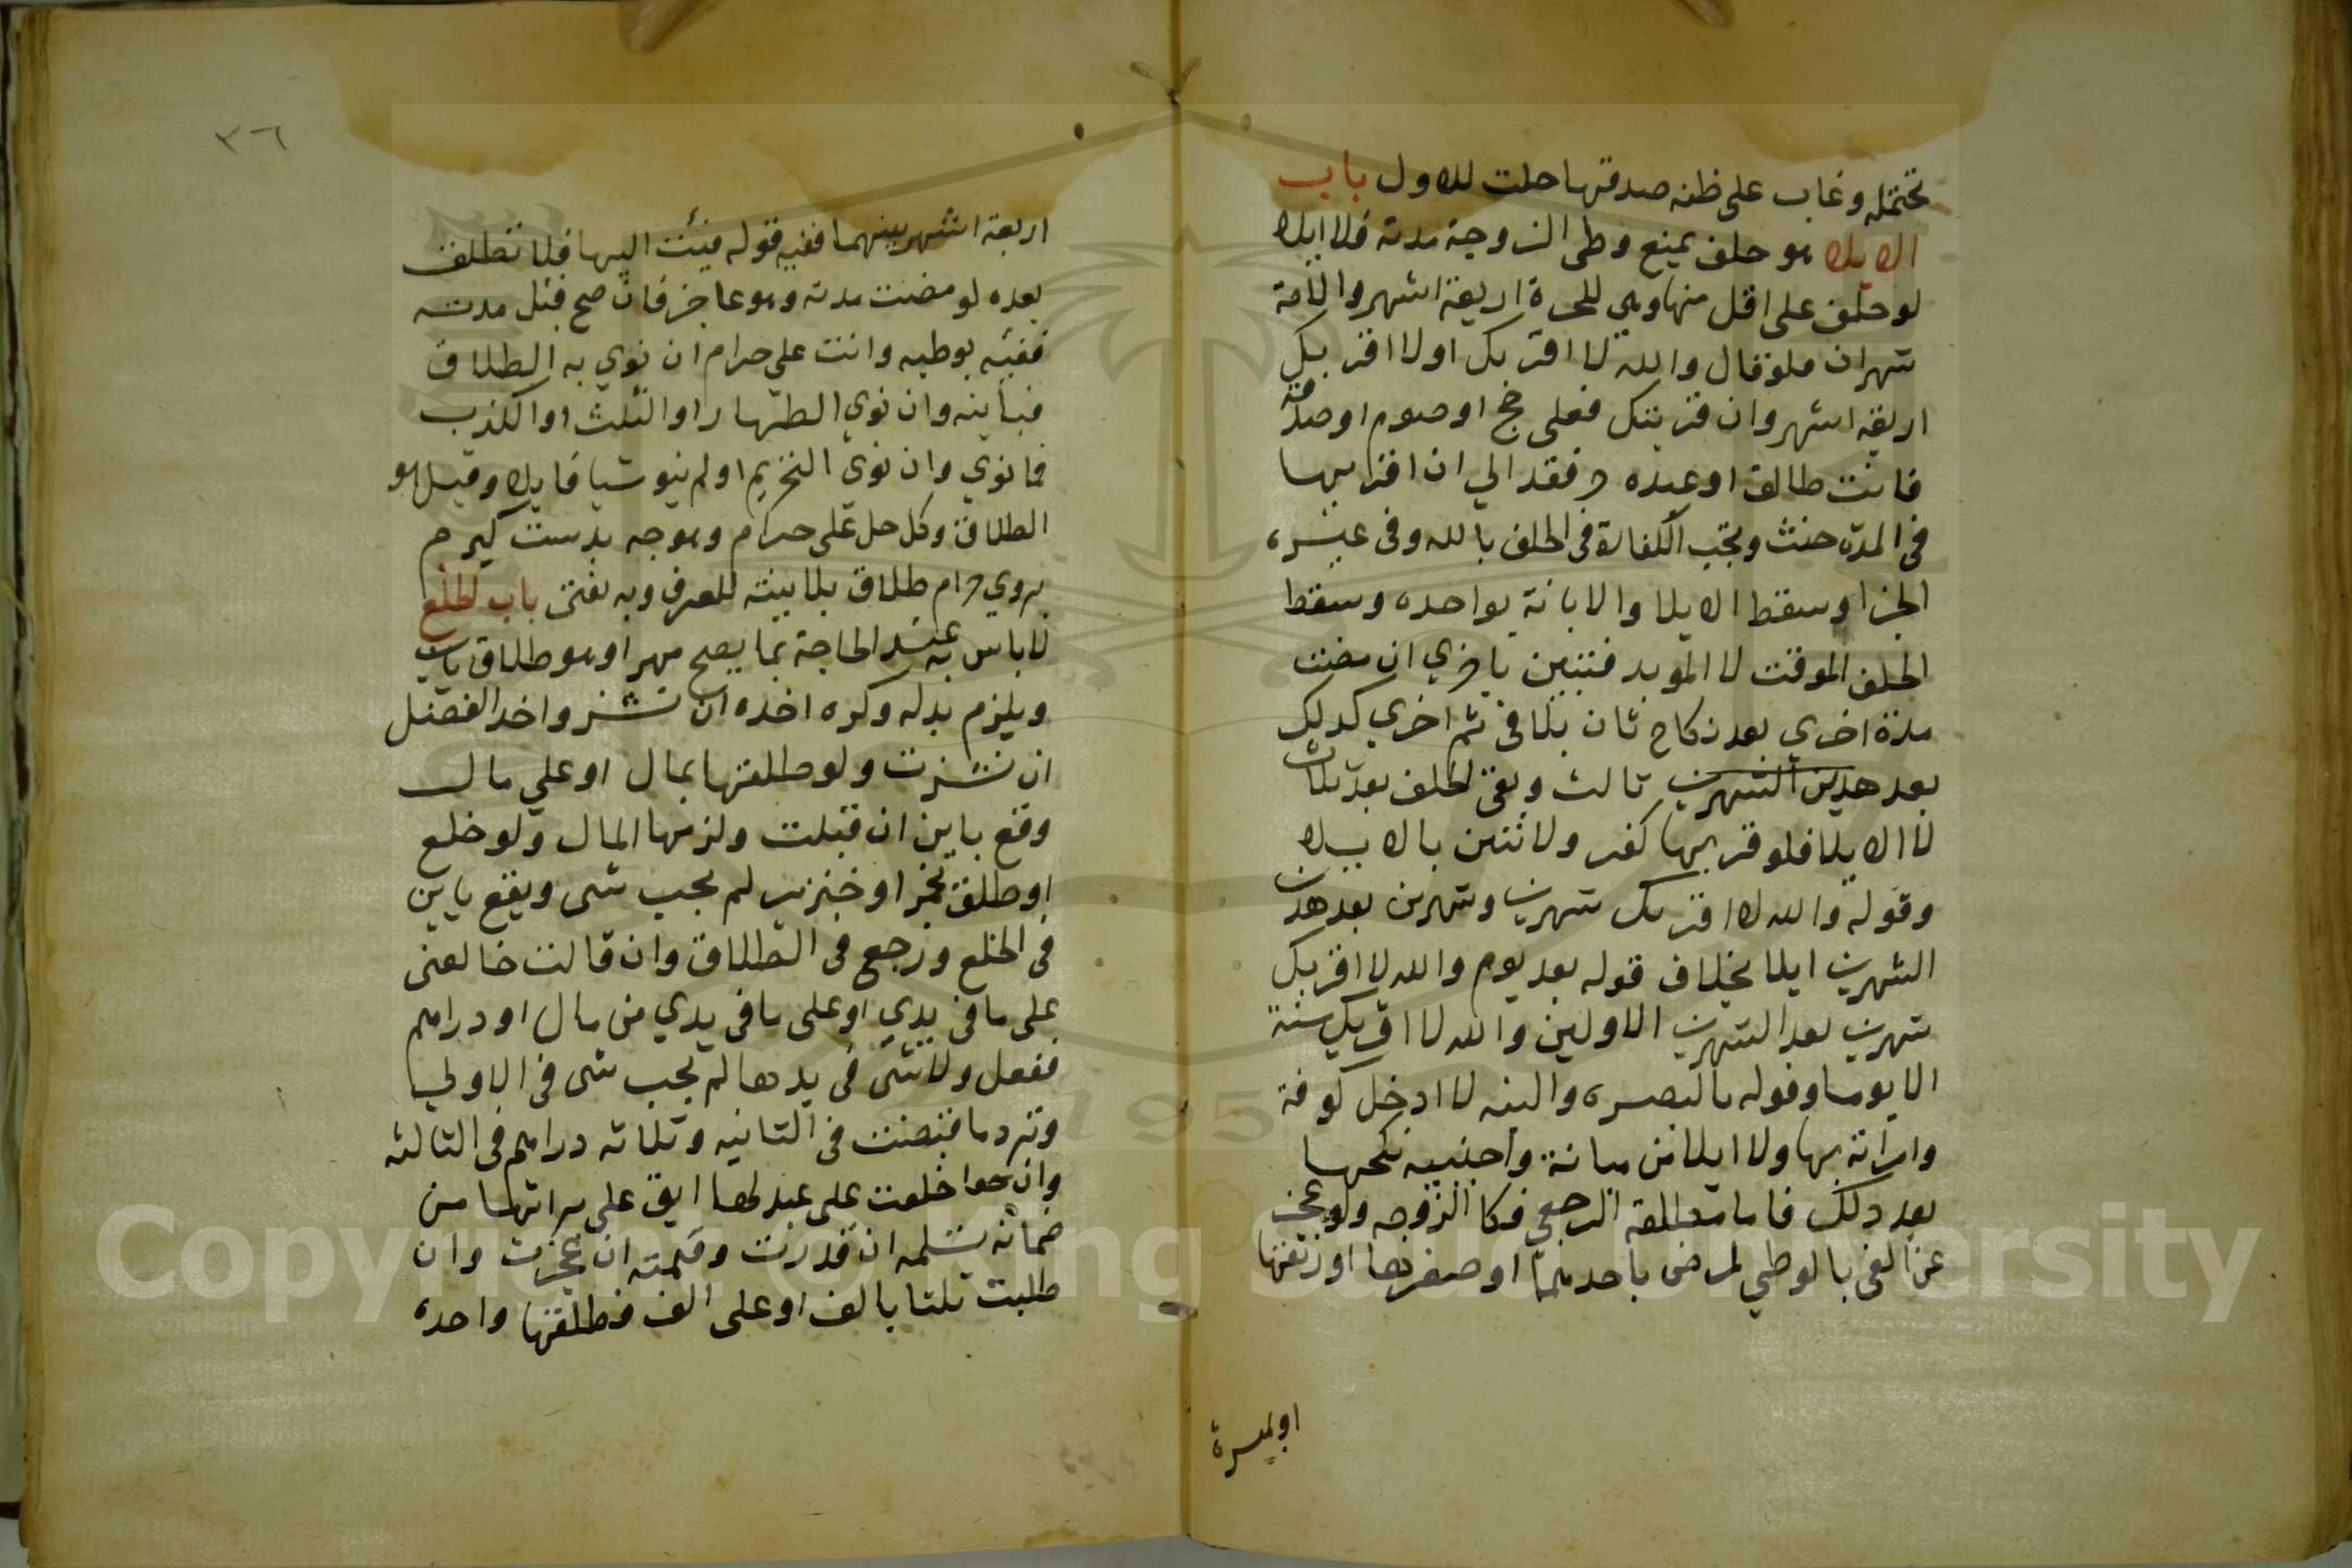 تحتمله وغاب على ظنه صدقتها حلت للاول باب
الايلا هو حلف يمنع وطى الزوجة مدته فلا ايلا
لو حلف على اقل منها وهي للحرة اربعة اشهر والامة
شهران فلو قال والله لا اقربك او لا اقربك
اربعة اشهر وان قربتك فعلى حج او صوم او صدقة
فانت طالق او عبده حر فقد الي ان اقربها
فى المدة حنث وتجب الكفارة فى الحلف بالله وفى غيره
الجزا وسقط الايلا والا بانة بواحده وسقط
الحلف الموقت لا المويد فتبين باخري ان مضت
مدة اخري بعد نكاح ثان بلا فئ ثم اخري كدلك
بعد هدين الشهرين ثالث وبقى الحلف بعد ثلاث
لا الايلا فلو قربها كفر ولا تبين بالايلا
وقوله والله لا اقربك شهرين وشهرين بعد هدين
الشهرين ايلا بخلاف قوله بعد يوم والله لا اقربك
شهرين بعد الشهرين الاولين والله لا اقربك سنة
الا يوما وقوله بالبصره والله لا ادخل كوفة
وامراته بها ولا ايلا من مبانة واجنبيه نكحها
بعد دلك فاما مطلقة الرجعي فكا الزوجه ولو عجز
عن الفى بالوطي لمرض باحدهما او صغرها او رتقها
او لمسيرة
٣٦
اربعة اشهر بينهما ففيه قوله فيئت اليها فلا تطلق
بعده لو مضت مدته وهو عاجز فان صح قبل مدته
ففيئه بوطيه وانت على حرام ان نوي به الطلاق
فباينه وان نوي الظهار او الثلث او الكذب
فما نوي وان نوى التحريم او لم ينو شيا فايلا وقيل هو
الطلاق وكل حل على حرام وهوجه بدست كيرم
بروي حرام طلاق بلا بينة للعرف وبه يفتى باب الخلع
لا باس به عند الحاجة بما يصح مهرا وهو طلاق باين
ويلزم بدله وكره اخده ان نشز واخد الفضل
ان نشزت ولو طلقها بمال او علي مال
وقع باين ان قبلت ولزمها المال ولو خلع
او طلق بخمر او خنزير لم يجب شى ويقع باين
فى الخلع ورجع فى الطلاق وان قالت خالعنى
على ما فى يدي او على ما فى يدي من مال او دراهم
ففعل ولا شى فى يدها لم يجب شى فى الاولي
وترد ما قبضت فى الثانيه وثلاثه دراهم فى الثالثه
وان خلعت على عبد لها ابق على براتها من
ضمانه تسلمه ان قدرت وقيمته ان عجزت وان
طلبت ثلثا بالف او على الف فطلقها واحده